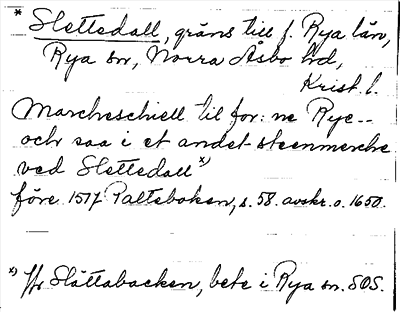 * Slettedall, gräns till f. Rya län,
Rya sn, Norra Åsbo hd,
Krist. l.
Marcheschiell til for: ne Rye--
och saa i et andet steenmerche
ved Slettedall x)
före 1517 Palteboken, s. 58. avskr. o. 1650.
x) Jfr Slättabacken, bete i Rya sn. SOS.